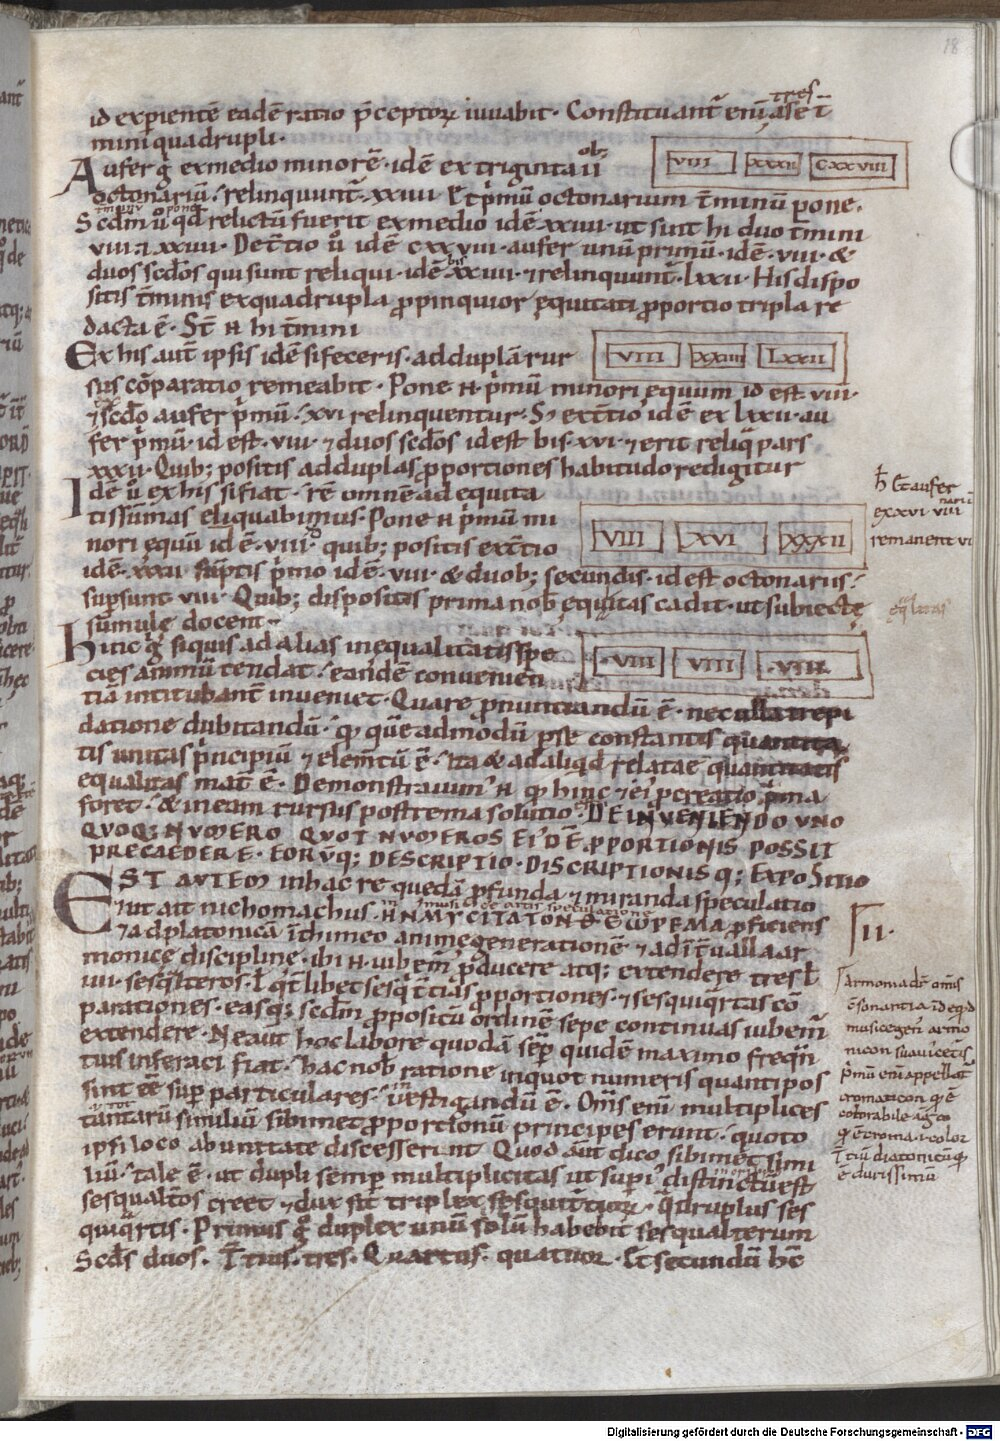 id experientē eadē ratio p̄ceptorꝝ iuuabit · Constituant̄ enī tres t̄
mini quadrupli ·
VIII XXXII CXXVIII
Aufer g̊ ex medio minorē · idē ex triginta ii ob;
octonariū / relinquunt̄ · xxiiii Et p̍mū octonarium t̄minū pone ·
Scdm̄ ū qd̄ relictū fuerit ex medio idē xxiiii · ut sint hi duo t̄mini
viii · ⁊ xxiiii · De t̄tio ū idē cxxviii · aufer unū primū · idē · viii · &
duos scdo̅s qui sunt reliqui · idē bis xxiiii · ⁊ relinquunt̄ · lxxii · His dispo
sitis t̄minis ex quadrupla ppinquior ęquitati pportio tripla re
dacta ē · St̄ n hi t̄mini
VIII XXIIII LXXII
Ex his aut̄ ipsis idē si feceris · ad duplā rur
sus cōparatio remeabit · Pone n p̍mū minori equum id est viii ·
⁊ scdo̅ aufer p̍mū / xvi relinquentur · S; ex t̄tio idē ex lxxii · au
fer p̍mū · id est · viii · ⁊ duos scdo̅s id est bis · xvi · ⁊ erit reliq̍ pars
xxxii · Quib; positis ad duplas pportiones habitudo redigitur
VIII XVI XXXII
Idē ū ex his si fiat · rē omnē ad equita
tis sum̄mas eliquabimus · Pone n p̍mū mi
nori ęquū idē · viii · quib; positis ex t̄tio
idē · xxxii sūptis p̍mo idē · viii · & duob; secundis · id est octonariis /
supsunt viii · Quib; dispositis prima nob̄ equitas cadit · ut subiectę
sūmulę docent ·
h̄ G aufer
ex xvi viii
remanent vi
VIII VIII VIII
Hinc g̊ siquis ad alias inequalitatis spe
cies animū tendat / eandē convenien
tiā intitubant̄ inueniet · Quare pnuntiandū ē · nec ulla trepi
datione dubitandū · qđ quēadmodū p se constantis quantita
tis unitas p̍ncipiū ⁊ elem̄tū ē / ita & ad aliqd̄ relatae quantitatis
equalitas mat̄ ē · Demonstrauim̍ n qđ hinc ⁊ ei pcreatio p̍ma
foret / & in eam rursus postrema solutio · DE INVENIENDO VNO
QVOQ; NVMERO QVOT NVMEROS EI̍DĒ PPORTIONIS POSSIT
PRECAEDERE · EORV̄Q; DESCRIPTIO · DISCRIPTIONISQ; EXPOSITIO
EST AVTEM in hac re quedā pfunda ⁊ miranda speculatio
⁊ ut ait nichomachus · pficiens
⁊ ad platonicā ī thimeo animę generationē ⁊ ad īt̄ualla ar
monicę disciplinę · ibi n iubem̄ pducere atq; extendere tres l̄
iiii · sesq̍lteros · l̄ q̍t libet sesq̍t̄tias pportiones · ⁊ sesquiq̍rtas cō
parationes · eas q; scdm̄ ppositū ordinē sepe continuas iubem̄
extendere · Ne aut̄ hoc labore quodā sēp quidē maximo freq̄n
tius inferaci fiat / hac nob̄ ratione in quot numeris quanti pos
sint eē sup particulares / uestigandū ē · Om̄s eni multiplices
tantarū similiū sibimet pportionū principes erunt / quoto
ipsi loco ab unitate discesserunt Quod aūt dico sibimet simi
liū / tale ē · ut dupli semp multiplicitas ut sup̍i distinctū est
sesqualt̄os creet ⁊ dux sit triplex sesquit̄tiorꝝ · q̍druplus ses
quiq̍rtis · Primus g̊ duplex unū solū habebit sesqualterum
Scds̄ duos · T̄tius · tres · Quartus · quatuor · Et secundū hc̄
II ·
Armonia dē om̄is
musice gen̄ armo
nicon suauitatis
p̍mū eni appellat̄
cromaticon q̍ ē
colorabile
q̍ ē croma · i color
t̄tiū diatonicū q̍
ē durissimū
18
Digitalisierung gefördert durch die Deutsche Forschungsgemeinschaft - DFG